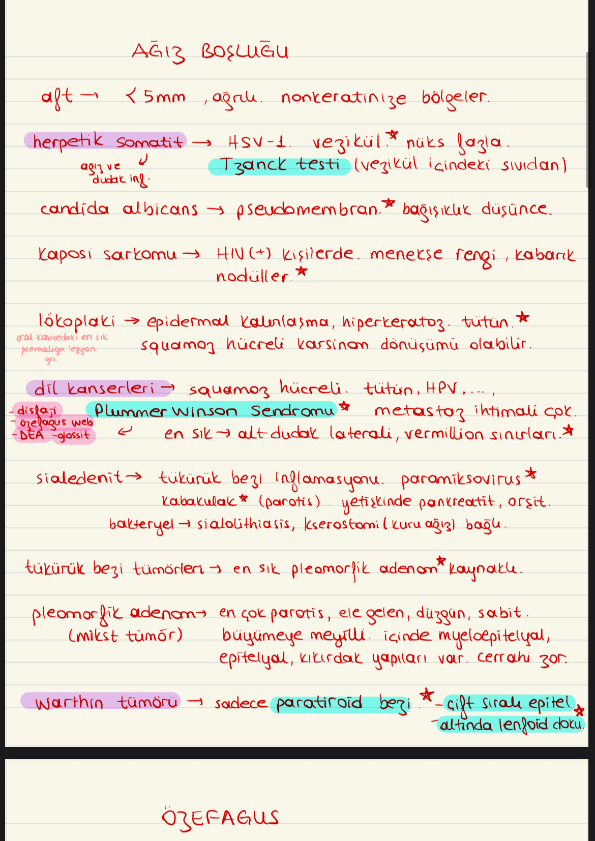 AĞIZ BOŞLUĞU
aft → < 5mm , ağrılı. nonkeratinize bölgeler.
herpetik somatit → HSV-1. vezikül.* nüks fazla.
ağız ve dudak inf.
Tzanck testi (vezikül içindeki sıvıdan)
candida albicans → pseudomembran.* bağışıklık düşünce.
Kaposi sarkomu → HIV(+) kişilerde. menekşe rengi, kabarık
nodüller.*
lökoplaki → epidermal kalınlaşma, hiperkeratoz. tütün.*
oral kavitedeki en sık
premalign lezyon
squamoz hücreli karsinom dönüşümü olabilir.
dil kanserleri → squamoz hücreli. tütün, HPV, ...,
- disfaji
- özefagus web
- DEA - glossit
Plummer Winson Sendromu* metastaz ihtimali çok.
en sık → alt dudak laterali, vermillion sınırları.*
sialedenit → tükürük bezi inflamasyonu. paramiksovirus*
kabakulak* (parotis) yetişkinde pankreatit, orşit.
bakteryel → sialolithiasis, kserostomi (kuru ağız) bağlı.
tükürük bezi tümörleri → en sık pleomorfik adenom* kaynaklı.
pleomorfik adenom → en çok parotis, ele gelen, düzgün, sabit.
(mikst tümör) büyümeye meyilli. içinde myeloepitelyal,
epitelyal, kıkırdak yapıları var. cerrahi zor.
Warthin tümörü → sadece paratiroid bezi.* - çift sıralı epitel
- altında lenfoid doku.*
ÖZEFAGUS